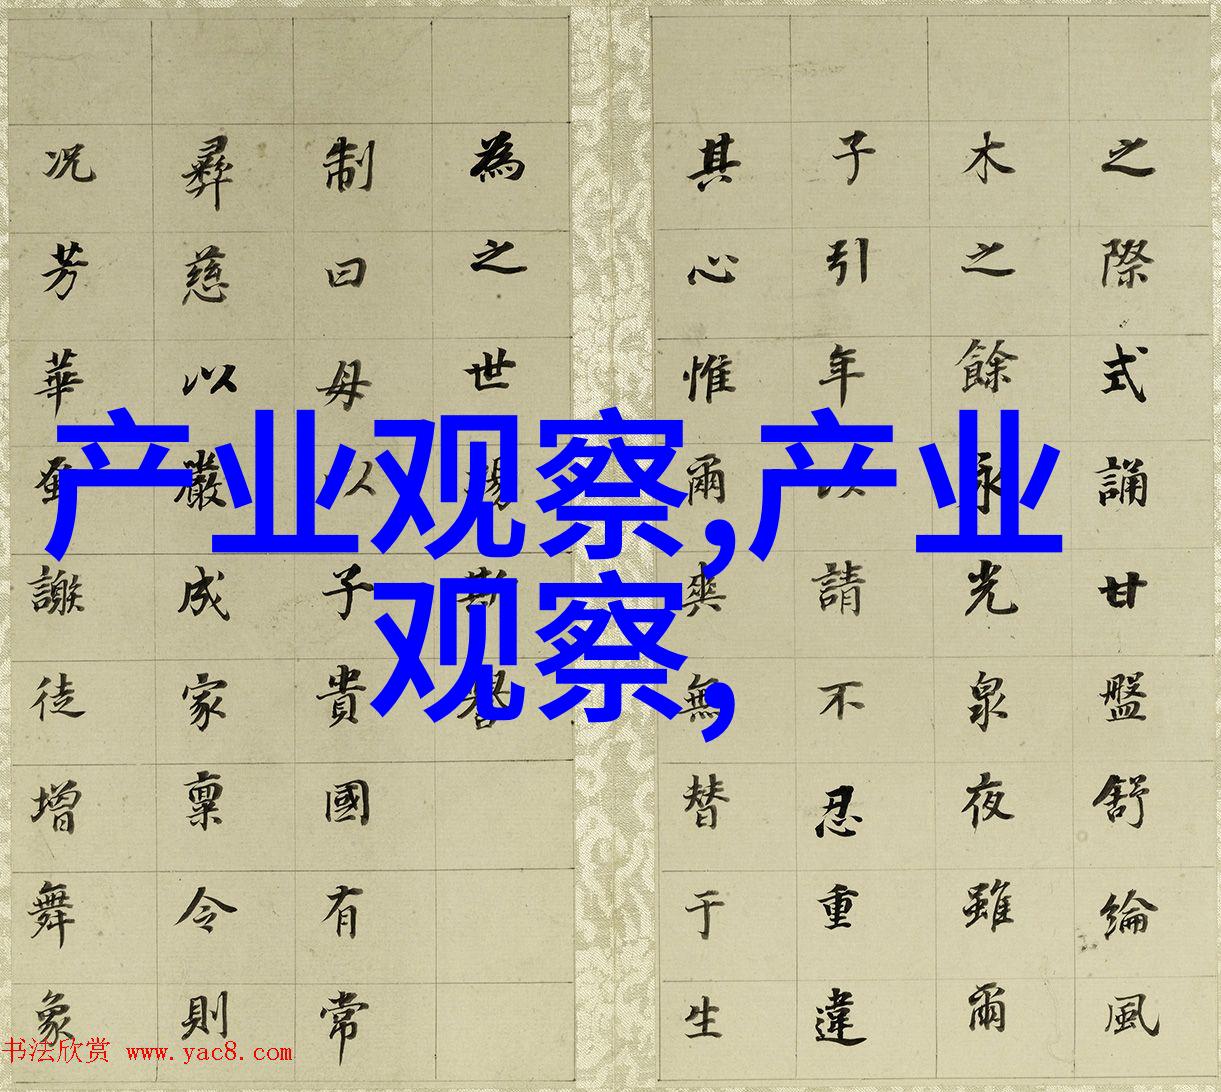 产业观察,产业
观察,
之際式誦甘盤舒綸風
木之餘永光泉夜雖爾
子引年以請不忍重違
其心惟爾爽無替于生
為之世斯
制曰母以子貴國有常
彝慈以嚴成家稟令則
况芳華蚤謝徒增舞象
书法欣赏 www.yac8.com